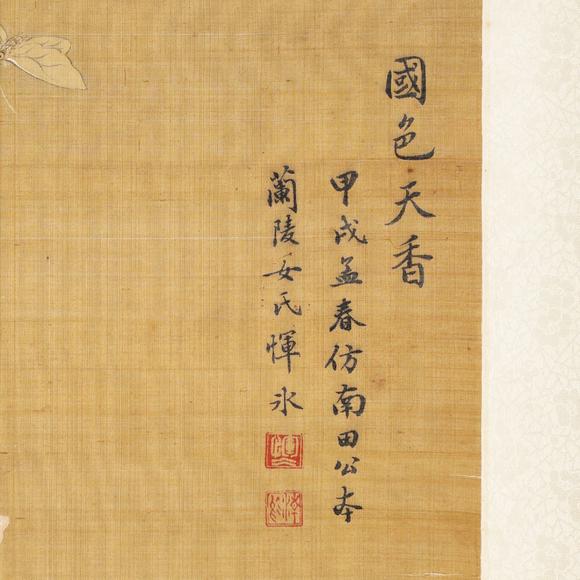 國色天香
甲戌孟春仿南田公本
蘭陵女氏惲氷